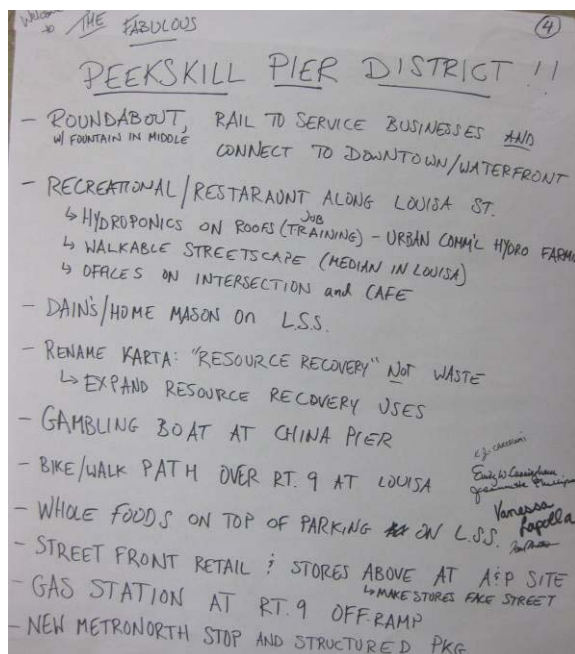 Welcome to THE FABULOUS
4
PEEKSKILL PIER DISTRICT !!
- ROUNDABOUT, RAIL TO SERVICE BUSINESSES AND
W/ FOUNTAIN IN MIDDLE
CONNECT TO DOWNTOWN/WATERFRONT
- RECREATIONAL/RESTARAUNT ALONG LOUISA ST.
↳ HYDROPONICS ON ROOFS (JOB TRAINING) - URBAN COMM'L HYDRO FARMS
↳ WALKABLE STREETSCAPE (MEDIAN IN LOUISA)
↳ OFFICES ON INTERSECTION and CAFE
- DAIN'S/HOME MASON ON L.S.S.
- RENAME KARTA: "RESOURCE RECOVERY" NOT WASTE
↳ EXPAND RESOURCE RECOVERY USES
- GAMBLING BOAT AT CHINA PIER
- BIKE/WALK PATH OVER RT. 9 AT LOUISA
- WHOLE FOODS ON TOP OF PARKING ON L.S.S.
Vanessa
- STREET FRONT RETAIL & STORES ABOVE AT A&P SITE
↳ MAKE STORES FACE STREET
- GAS STATION AT RT. 9 OFF-RAMP
- NEW METRONORTH STOP AND STRUCTURED PKG